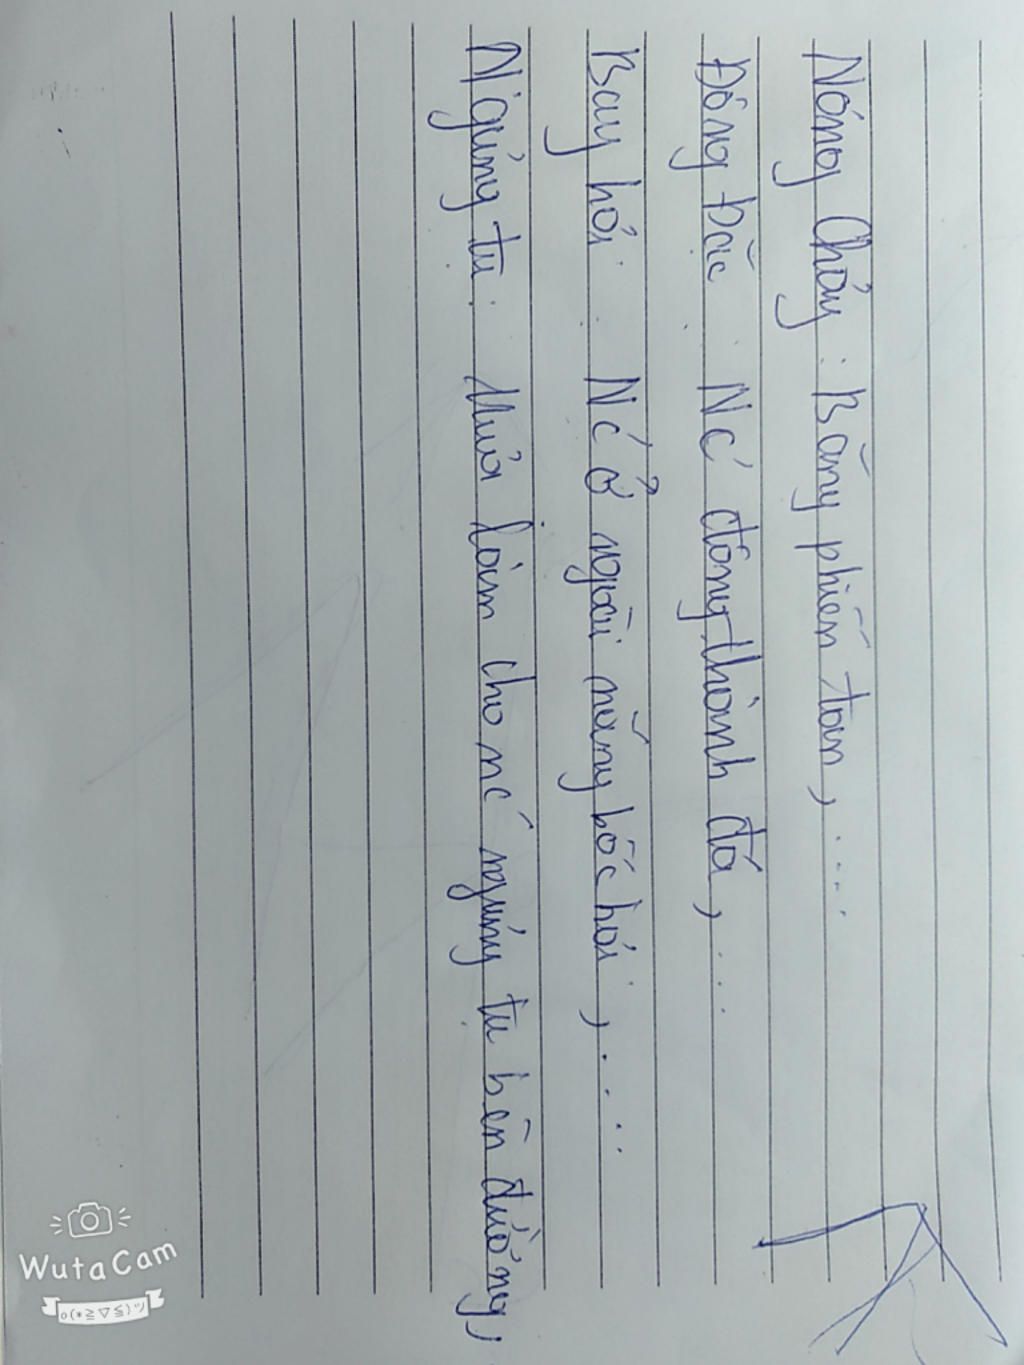 Nóng chảy : Băng phiến tan, ....
Đông đặc : Nć đông thành đá, ....
Bay hơi : Nć ở ngoài nắng bốc hơi, ....
Ngưng tụ : Mưa làm cho nć ngưng tụ bên đường,
WutaCam
o(*≧▽≦)ツ